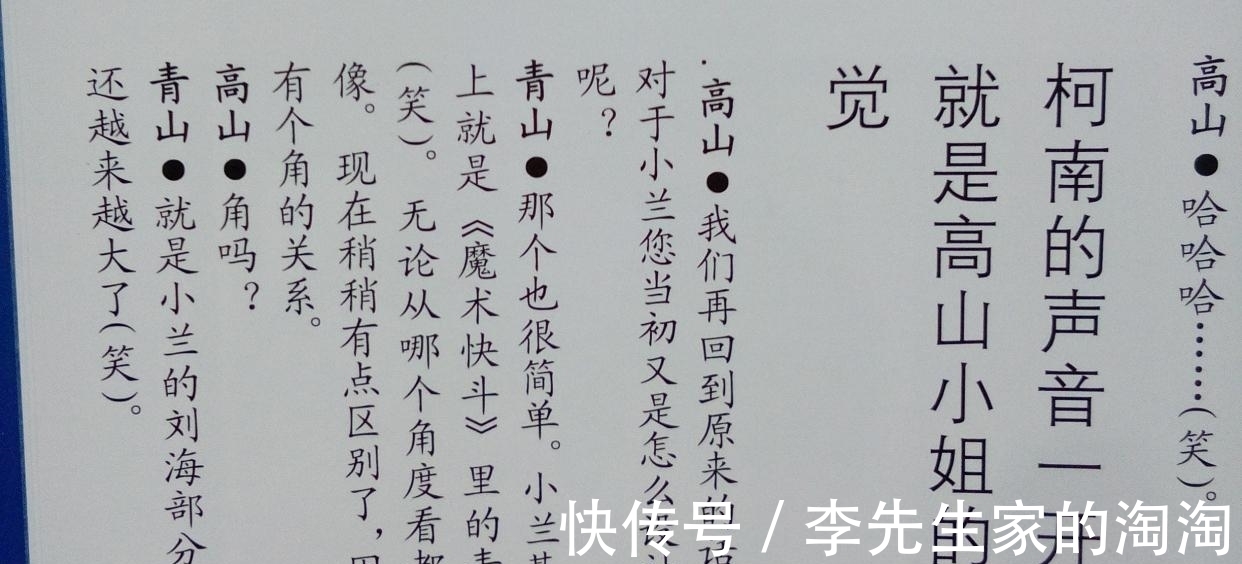 高山●哈哈哈……(笑)。
柯南的声音一开
就是高山小姐的
觉
·高山●我们再回到原来的话
对于小兰您当初又是怎么设
呢？
青山●那个也很简单。小兰基
上就是《魔术快斗》里的青
(笑)。无论从哪个角度看都
像。现在稍稍有点区别了，因
有个角的关系。
高山●角吗？
青山●就是小兰的刘海部分
还越来越大了(笑)。
快传号 / 李先生家的淘淘